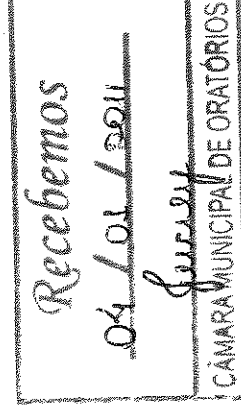 Recebemos
04 / 01 / 2011
CÂMARA MUNICIPAL DE ORATÓRIOS